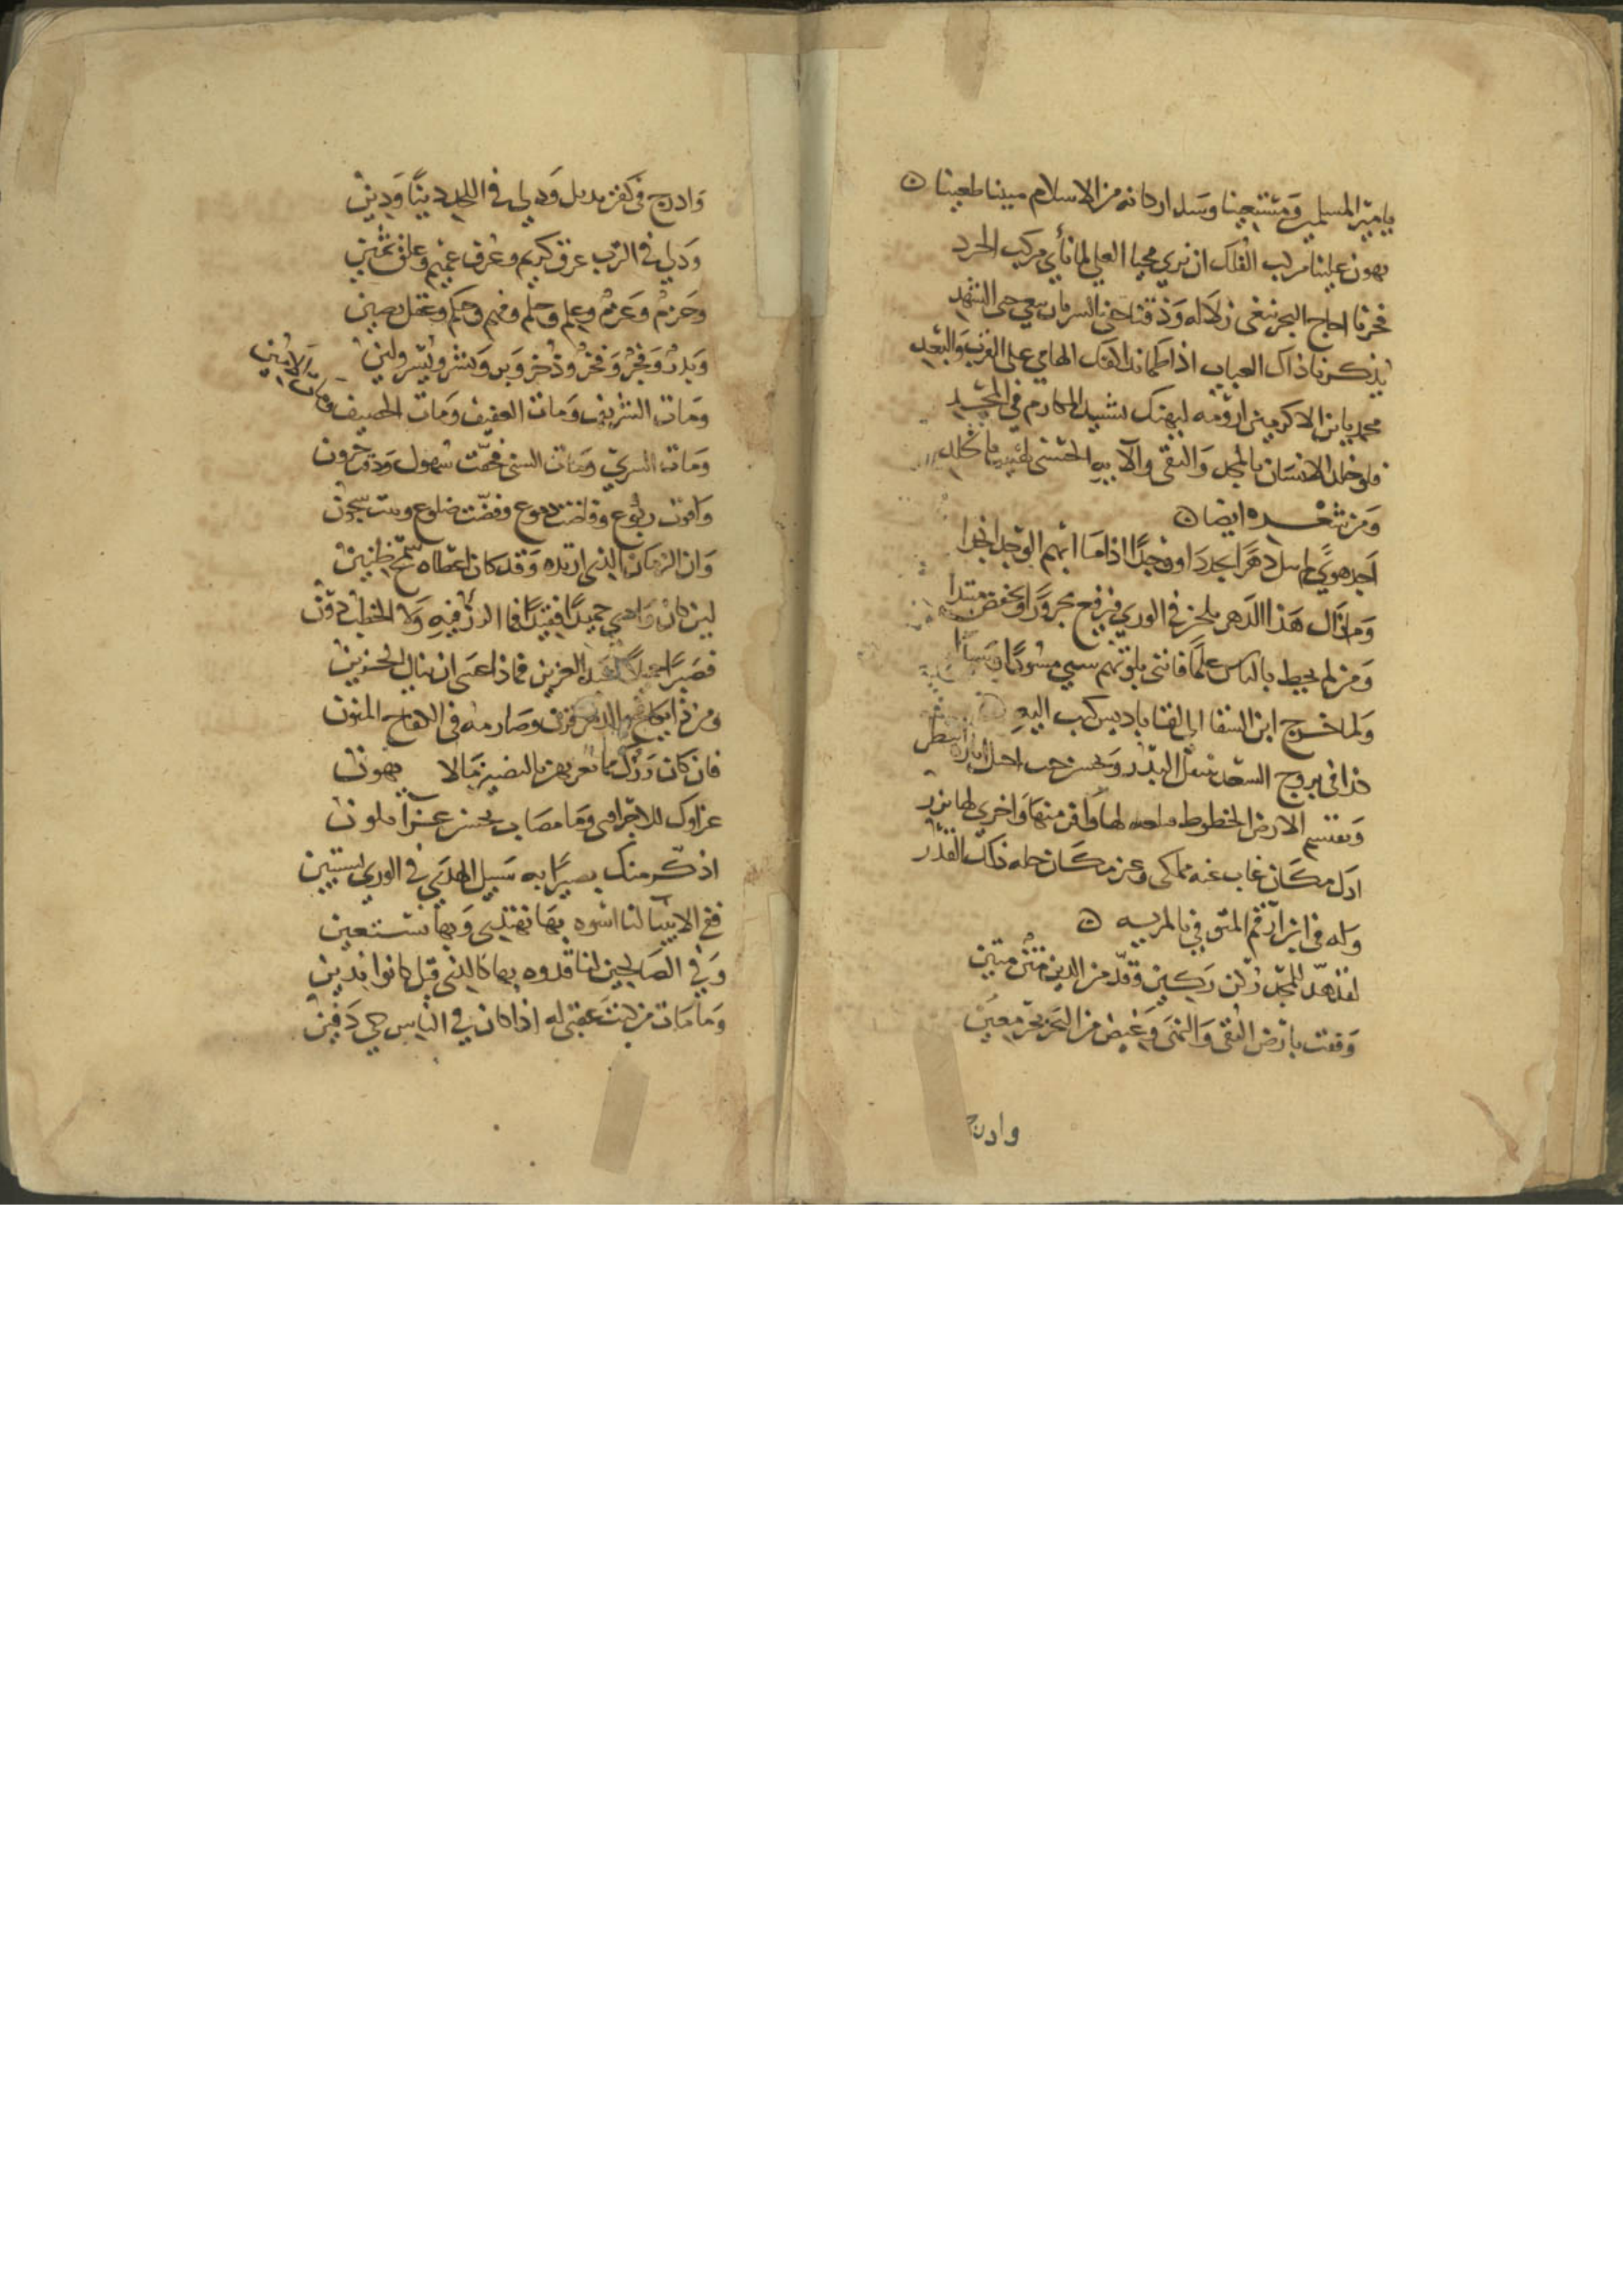 يا ميّز المسلمين ومستعينا وسد اركانه من الاسلام مبينا طعينا
يهون علينا مركب الفلك ان نري محيا العلي لما نأي مركب الجرد
فجزنا اجاج البحر نبغي زلاله وذقنا جني السم نبغي جني الشهد
يذكرنا ذاك العباب اذا طما نداك الهامي علي القرب والبعد
محمد يا بن الاكرمين ارومة ليهنك تشييد المكارم في المجد
فلو خلد الانسان بالمجد والتقي والآيه الحسني لهنيت بالخلد
ومن شعره ايضا
اجد هوي لم يبل دهر ا تجددا ووجدا اذا ما اتهم الوجد انجدا
وما زال هذا الدهر يلحن في الوري فيرفع مجرورا ويخفض مبتدا
ومن لم يحط بالناس علما فانني بلوتهم شتي مسودا وسيدا
ولما خرج ابن السقا الي لقا باديس كتب اليه
كذا في بروج السعد ينتقل البدر ويحسن حيث احتل اثاره القطر
وتقتسم الارض الحظوظ لها وافر منها واخري لها نزر
اذل مكان غاب عنه مملكي وعز مكان حله ذلك القدر
وله في ابن ارقم المتوفي بالمريه
لقد هد للمجد ركن ركين وقد من الدين متن متين
وقفت بارض التقي والنهي وغيض من البحر بحر معين
وادرج
وادرج في كفن بل ودلي في اللحد دينا ودين
ودلي في الترب عرق كريم وعرف عميم وعلق ثمين
وحزم وعزم وعلم وحلم وفهم وحكم وعقل رصين
وبدر وفجر وفخر وذخر وبر وبشر ويسر ولين
ومات الشريف ومات العفيف ومات الحصيف ومات الامين
ومات السري ومات السني فهمت سهول ودكت حزون
واقوت ربوع وفاضت دموع وفضت ضلوع وسحت شجون
وان الزمان الذي ارتده وقد كان اعطاه سمح ظنين
لين كان واحدي حميدا فقيدا فما الرز فيه ولا الخطب دون
فصبرا جميلا لفقد العزيز فماذا عسي ان ينال الحزين
ومن ذا يكافح الدهر قرن وصارمه في الكفاح المنون
فان كان رزوك مما تعز به فالصبر ما لا يهون
عزاوك للاجر اهني وما مصاب بحسن عزا ملون
اذكر منك بصيرا به سبيل الهدي في الوري تستبين
ففي الانبيا لنا اسوه بها نهتدي وبها نستعين
وفي الصالحين لنا قدوه بها كالذي قبل كانوا ندين
وما مات من كنت عقبي له اذا كان في الناس حي دفين